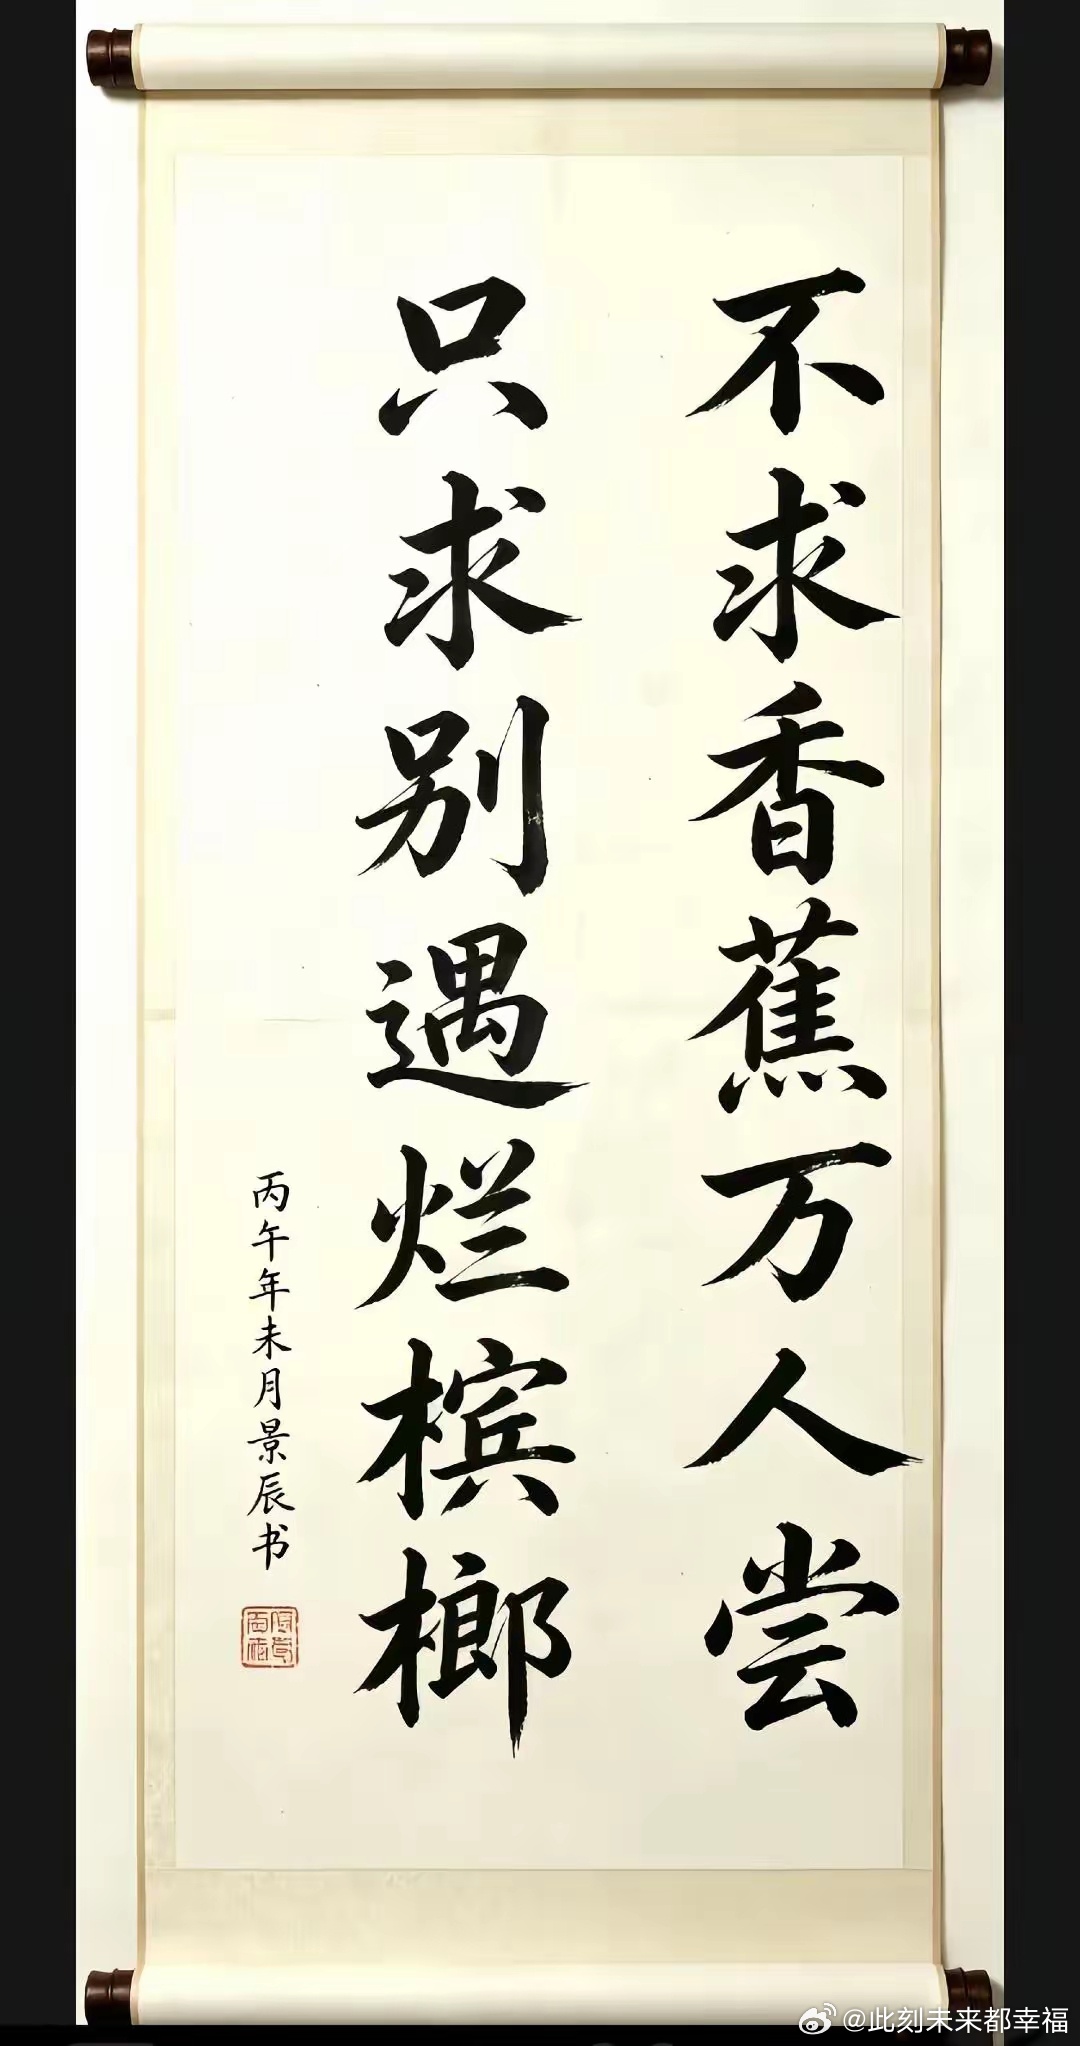 不求香蕉万人尝
只求别遇烂槟榔
丙午年未月景辰书
@此刻未来都幸福